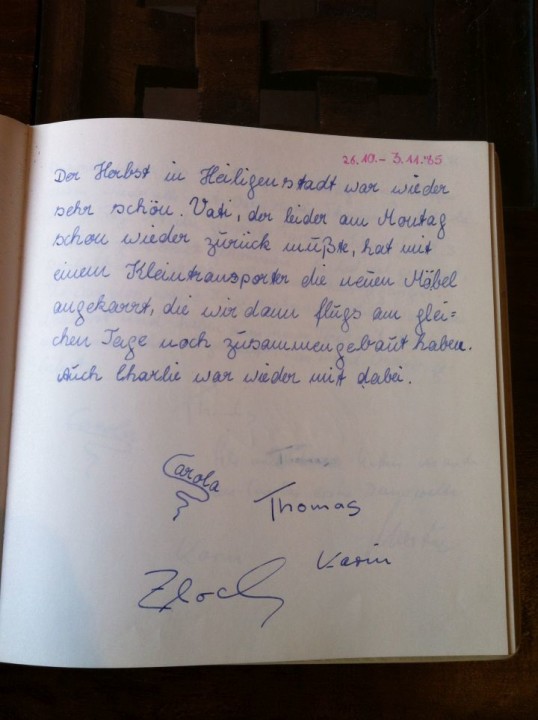 26.10.- 3.11.85
Der Herbst in Heiligenstadt war wieder
sehr schön. Vati, der leider am Montag
schon wieder zurück mußte, hat mit
einem Kleintransporter die neuen Möbel
angekarrt, die wir dann flugs am glei=
chen Tage noch zusammengebaut haben.
Auch Charlie war wieder mit dabei.
Carola
Thomas
Karin